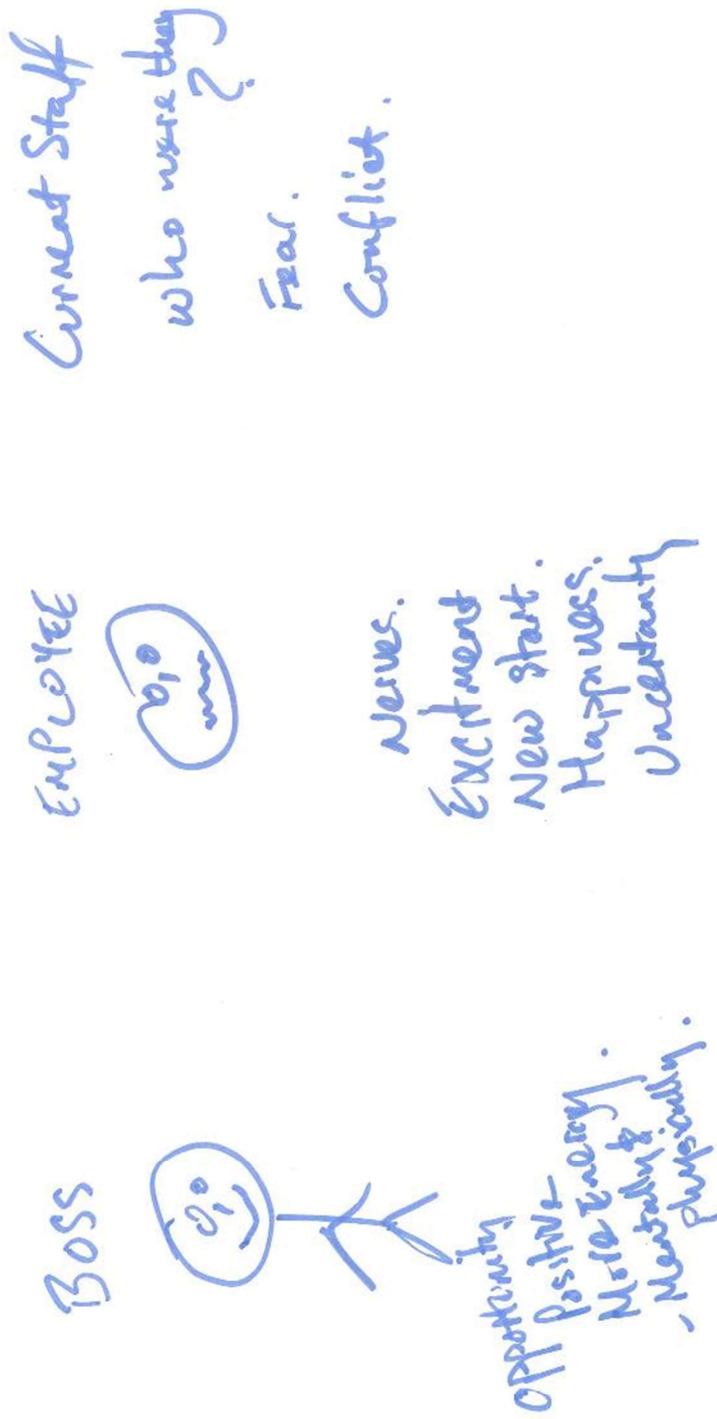 BOSS
Opportunity
Positive
More Energy.
- Mentally &
physically.
EMPLOYEE
Nerves.
Excitment
New start.
Happiness.
Uncertanty
Current Staff
Who were they
?
Fear.
Conflict.